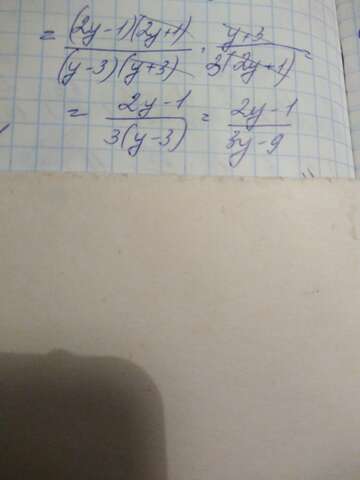 = (2y-1)(2y+1) / (y-3)(y+3) · y+3 / 3(2y+1) =
= 2y-1 / 3(y-3) = 2y-1 / 3y-9